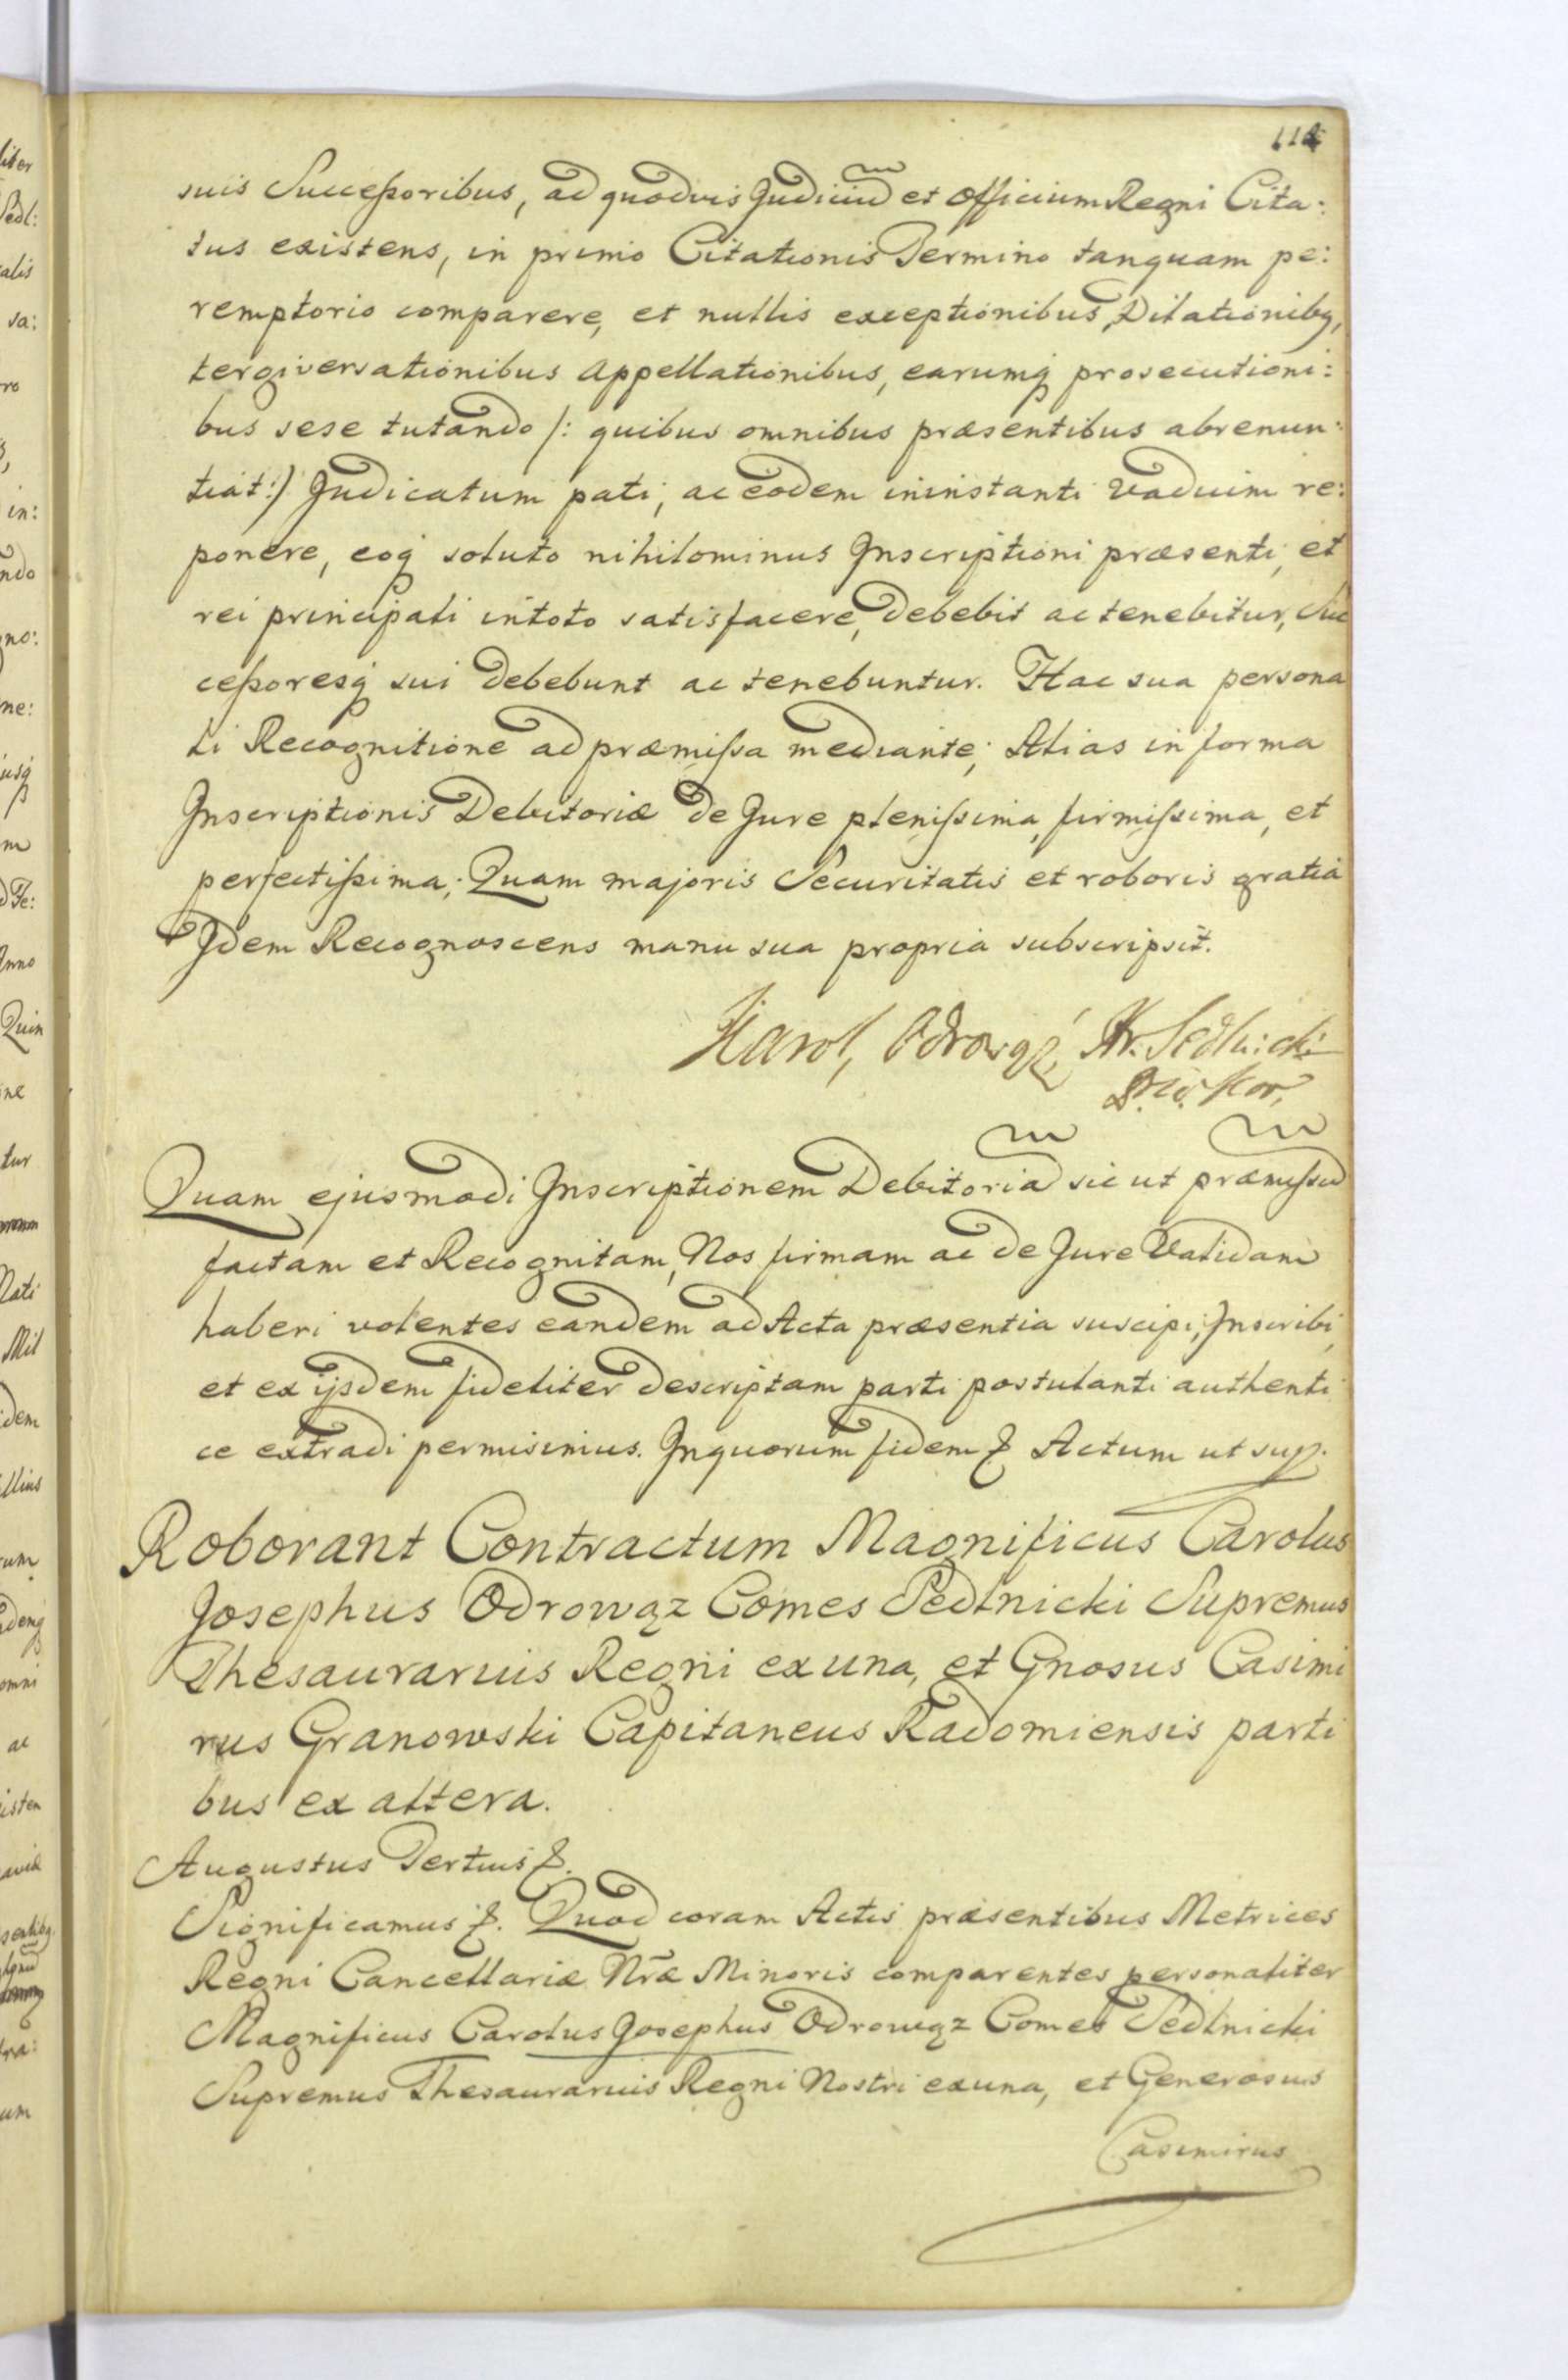 114
suis Successoribus, ad quodvis Judiciũ et Officium Regni Cita:
tus existens, in primo Citationis Termino tanquam pe:
remptorio comparere, et nullis exceptionibus, Dilationibq,
tergiversationibus appellationibus, earumq prosecutioni:
bus sese tutando /: quibus omnibus præsentibus abrenun:
tiat:/ Judicatum pati, ac eodem ininstanti Vadium re:
ponere, eoq soluto nihilominus Inscriptioni præsenti, et
rei principali intoto satisfacere, debebit ac tenebitur, Suc
cessoresq sui debebunt ac tenebuntur. Hac sua persona
li Recognitione ad præmissa mediante; Alias in forma
Inscriptionis Debitoriæ de Jure plenissima, firmissima, et
perfectissima; Quam majoris Securitatis et roboris gratia
Idem Recognoscens manu sua propria subscripsit.
Karol, Odrowąż, Hr. Sedlnicki
Quam ejusmodi Inscriptionem Debitoriã sic ut præmissũ
factam et Recognitam, Nos firmam ac de Jure Validam
haberi volentes eandem ad Acta præsentia suscipi, Inscribi,
et ex ijsdem fideliter descriptam parti postulanti authenti
ce extradi permisimus. Inquorum fidem Actum ut sup.
Roborant Contractum Magnificus Carolus
Josephus Odrowąz Comes Sedlnicki Supremus
Thesaurarius Regni exuna, et Gnosus Casimi
rus Granowski Capitaneus Radomiensis parti
bus ex altera.
Augustus Tertius
Significamus Quod coram Actis præsentibus Metrices
Regni Cancellariæ Nr̃æ Minoris comparentes personaliter
Magnificus Carolus Josephus Odrowąz Comes Sedlnicki
Supremus Thesaurarius Regni Nostri exuna, et Generosus
Casimirus